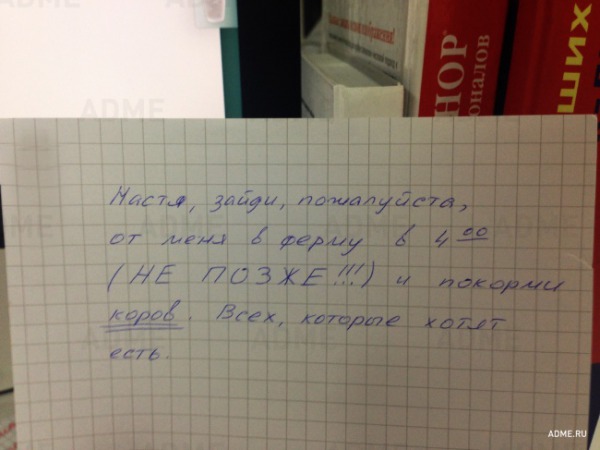 ADME
НОР
ОНАЛОВ
ШИХ
Настя, зайди, пожалуйста,
от меня в ферму в 4 00
(НЕ ПОЗЖЕ!!!) и покорми
коров. Всех, которые хотят
есть.
ADME.RU